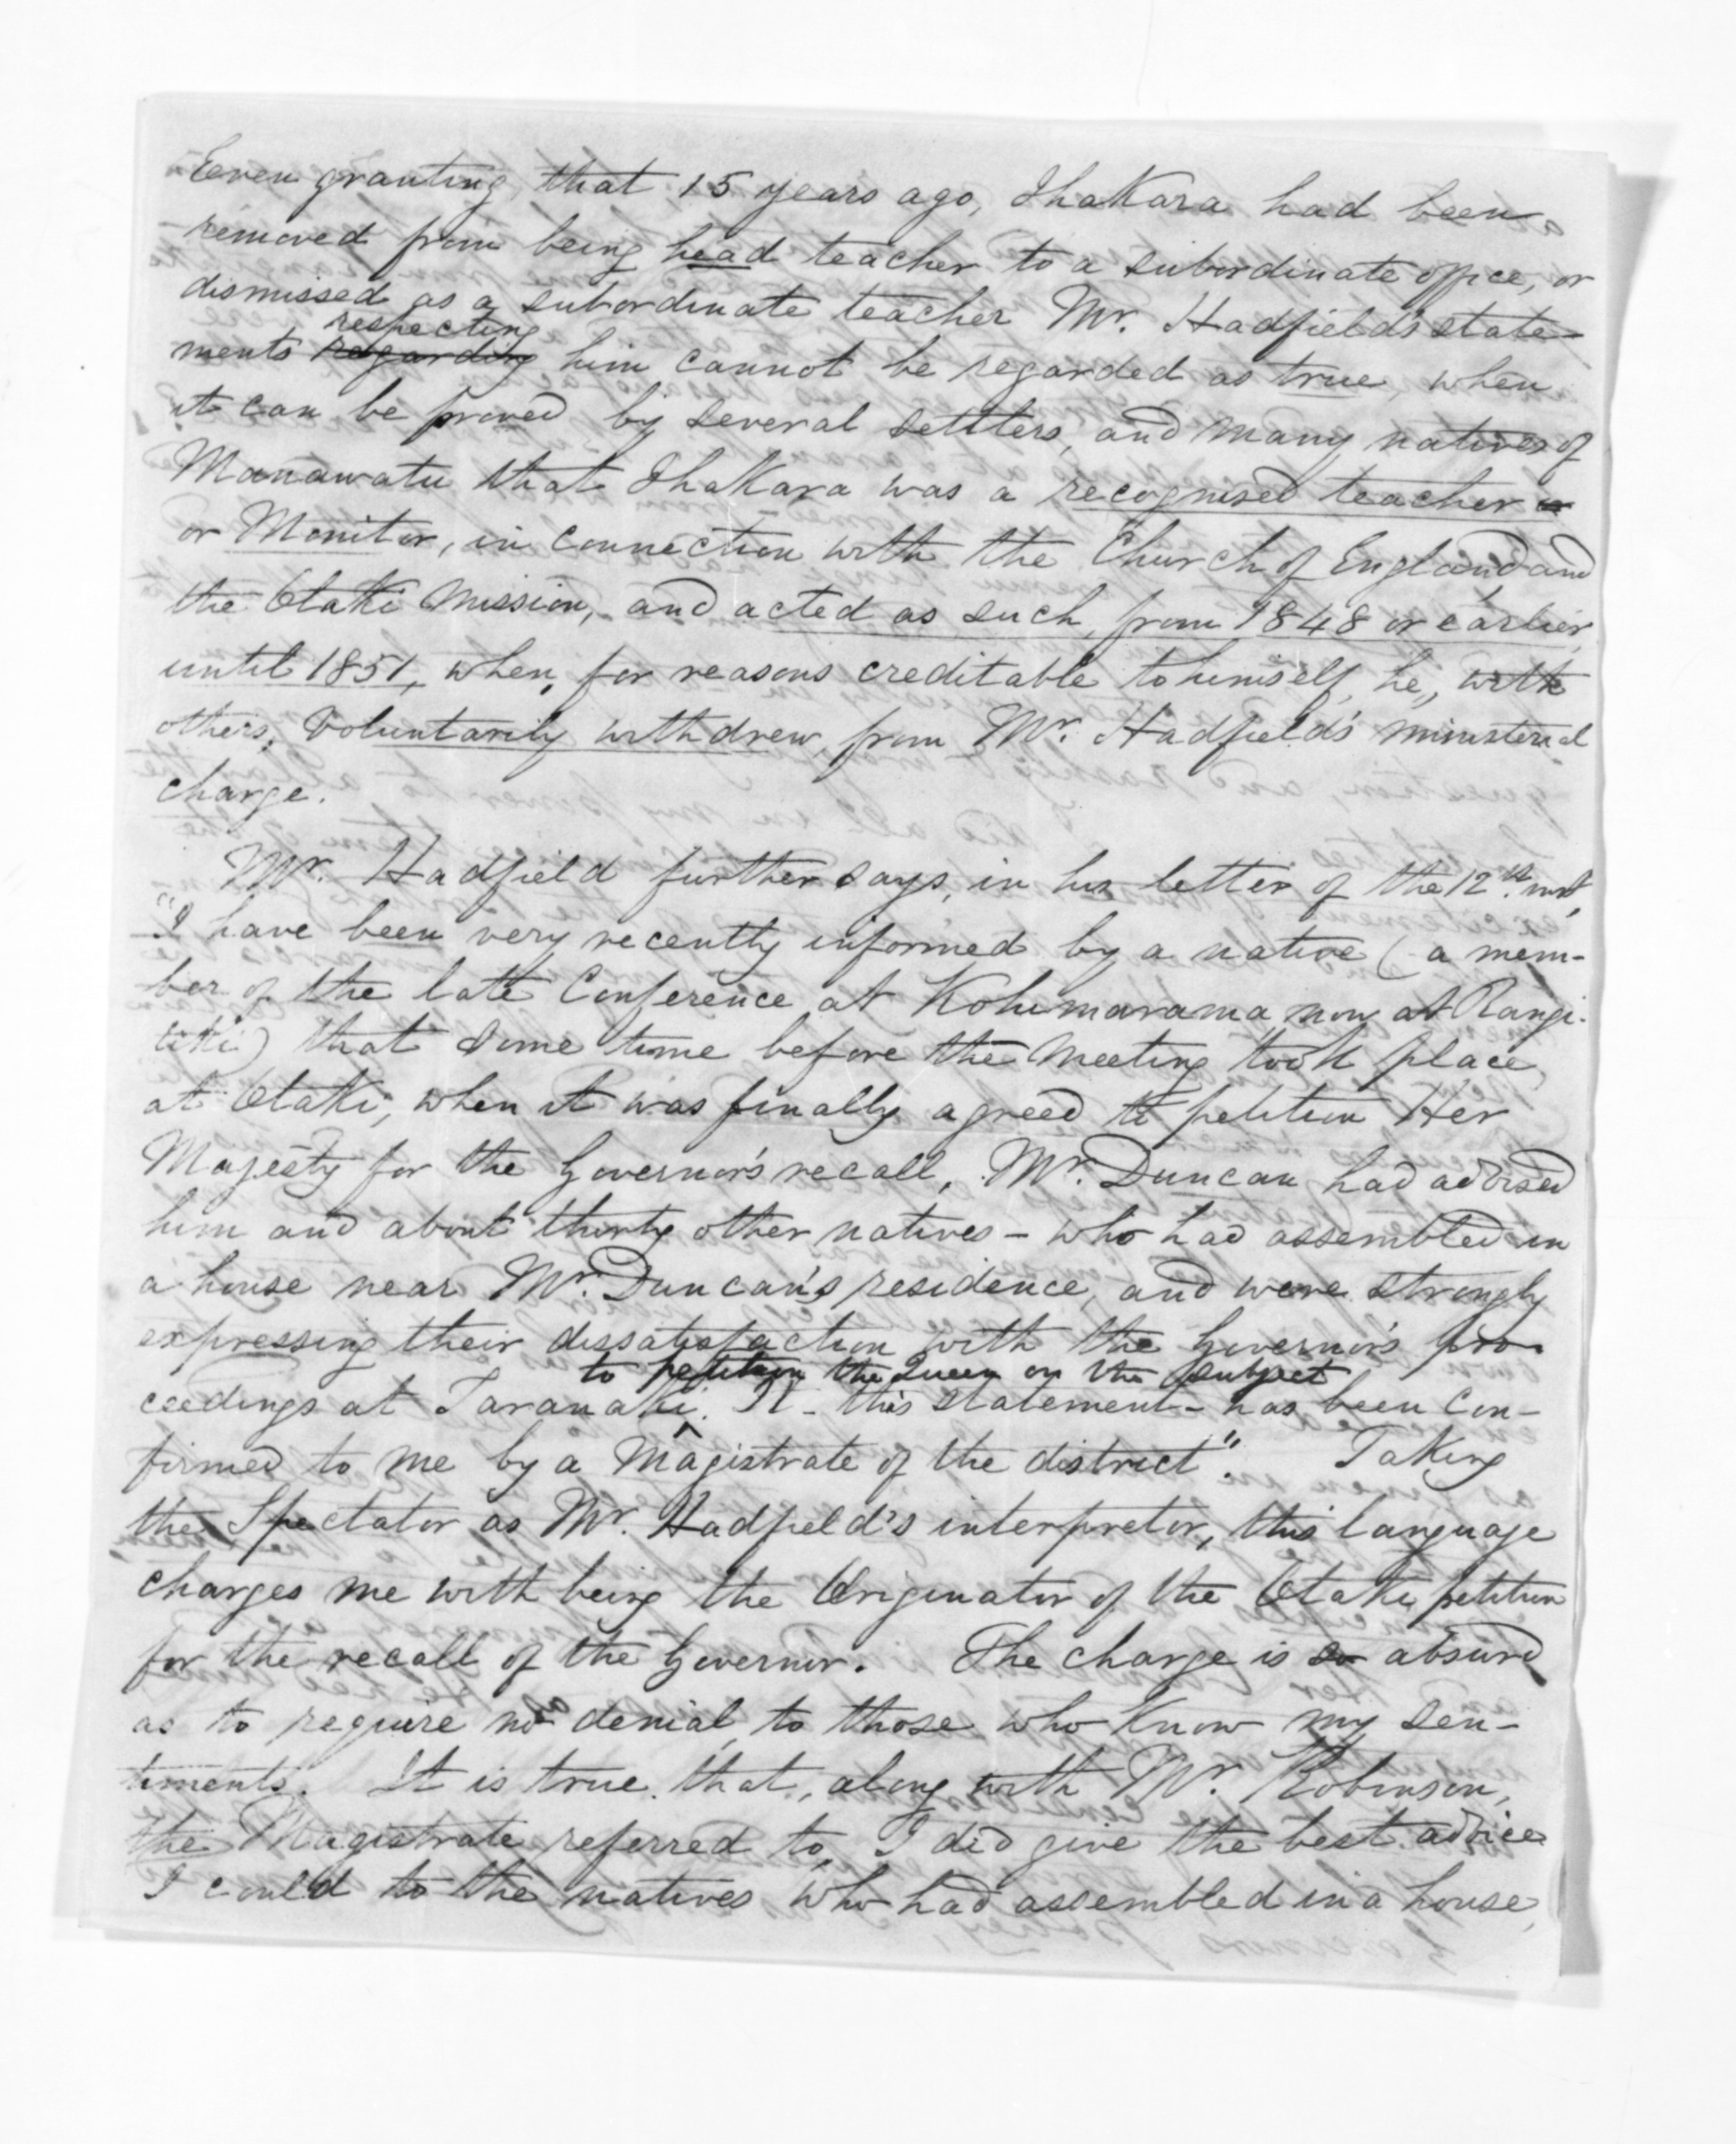 Even granting that 15 years ago, Ihakara had been
removed from being head teacher to a subordinate office, or
dismissed as a subordinate teacher Mr. Hadfield's state-
respecting
ments regarding him cannot be regarded as true, when
it can be proved by several settlers, and many natives of
Manawatu that Ihakara was a recognised teacher or
or Monitor, in connection with the Church of England, and
the Otaki Mission, and acted as such, from 1848 or earlier,
until 1851, when, for reasons creditable to himself, he, with
others, voluntarily withdrew, from Mr. Hadfield's ministerial
charge.
Mr. Hadfield further says, in his letter of the 12th. inst,
"I have been very recently informed by a native (a mem-
ber of the late Conference at Kohimarama, now at Rangi-
tiki) that some time before the Meeting took place,
at Otaki, when it was finally agreed to petition Her
Majesty for the Governor's recall, Mr. Duncan had advised
him and about thirty other natives - who had assembled in
a house near Mr. Duncan's residence, and were strongly
expressing their dissatisfaction with the Governor's pro-
to petition the Queen on the subject
ceedings at Taranaki. ^ R - this statement - has been con-
firmed to me by a Magistrate of the district". Taking
the Spectator as Mr. Hadfield's interpretor, this language
charges me with being the Originator of the Otaki petition
for the recall of the Governor. The charge is so absurd
as to require no denial, to those who know my sen-
timents. It is true, that, along with Mr. Robinson,
the Magistrate referred to, I did give the best advice
I could to the natives who had assembled in a house,